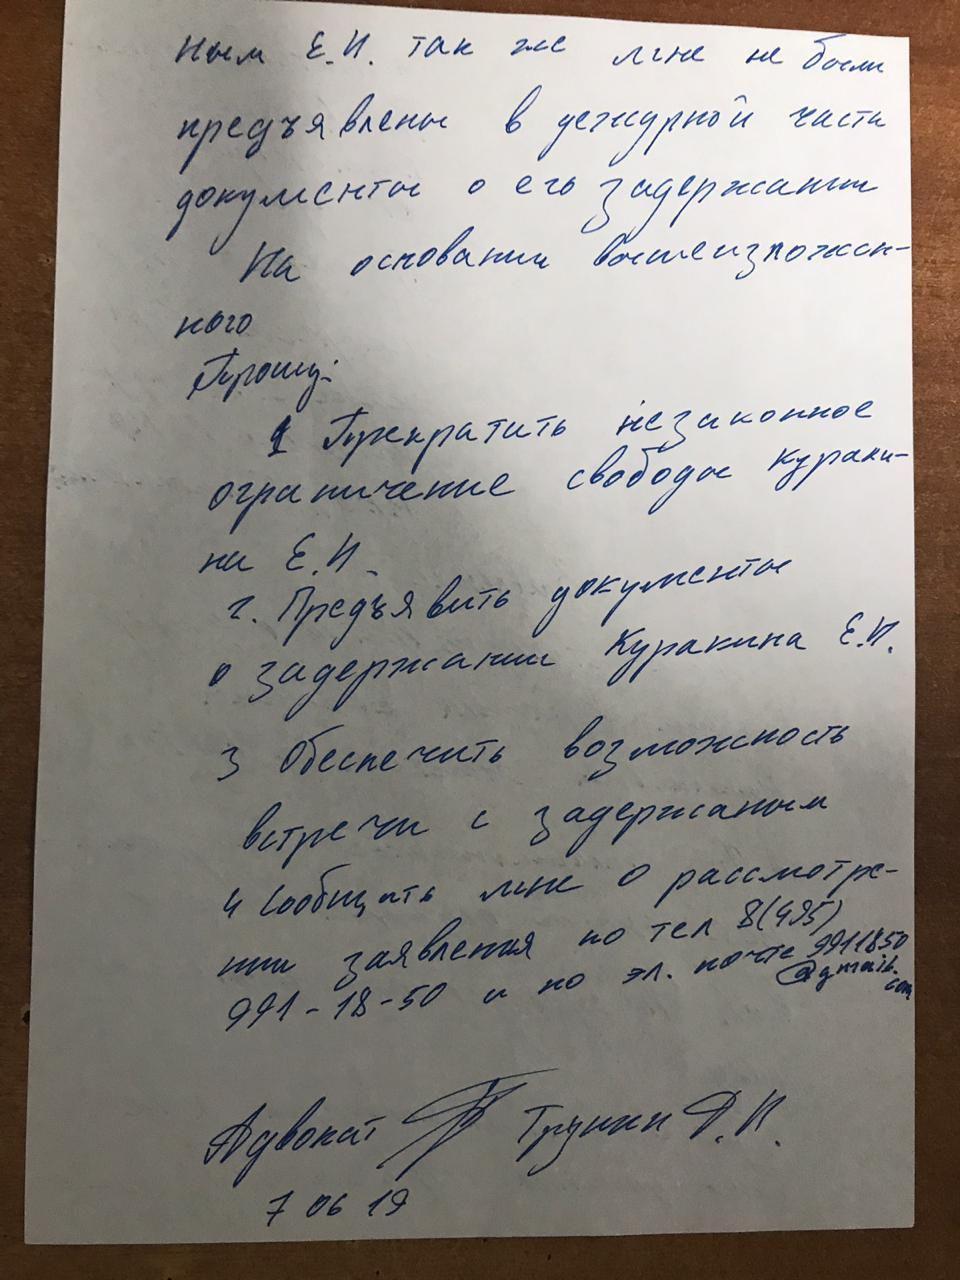 ным Е.И. так же мне не были
предъявлены в дежурной части
документы о его задержании
На основании вышеизложен-
ного
Прошу:
1 Прекратить незаконное
ограничение свободы Кураки-
на Е.И.
2. Предъявить документы
о задержании Куракина Е.И.
3 Обеспечить возможность
встречи с задержаным
4 Сообщить мне о рассмотре-
нии заявления по тел 8(495)
991-18-50 и по эл. почте 9911850
@gmail.
com
Адвокат Трунин Д.И.
7 06 19